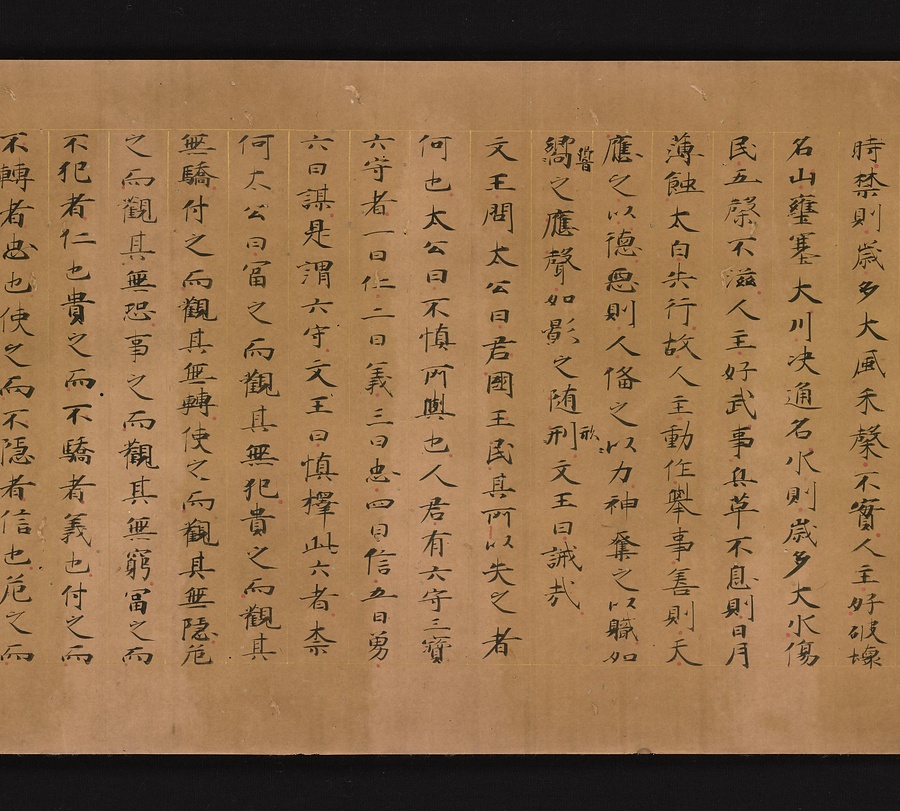 時禁則歳多大風禾榖不實人主好破壊
名山壅塞大川决通名水則歳多大水傷
民五榖不滋人主好武事兵革不息則日月
薄蝕太白失行故人主動作舉事善則天
應之以德惡則人俻之以力神奪之以職如
響
嚮之應聲如影之随刑文王曰誡哉
歟
文王問太公曰君國王民其所以失之者
何也太公曰不慎所與也人君有六守三寶
六守者一曰仁二曰義三曰忠四曰信五曰勇
六曰謀是謂六守文王曰慎擇此六者奈
何太公曰富之而觀其無犯貴之而觀其
無驕付之而觀其無轉使之而觀其無隠危
之而觀其無恐事之而觀其無窮富之而
不犯者仁也貴之而不驕者義也付之而
不轉者忠也使之而不隠者信也危之而